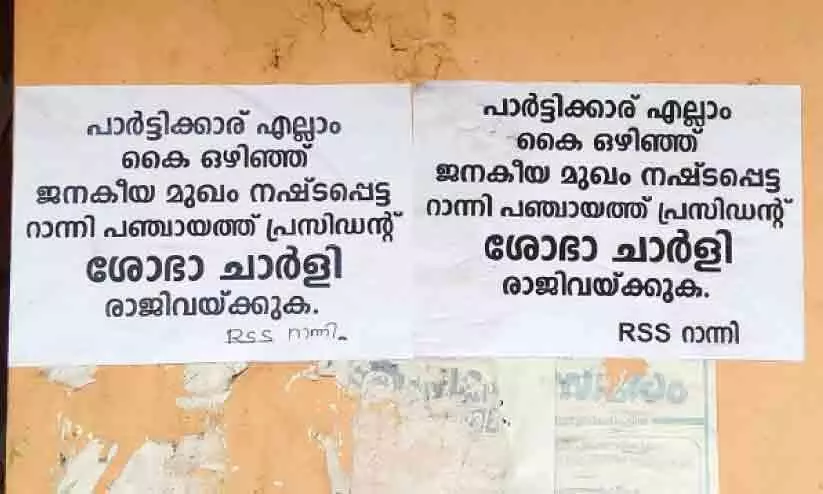 പാർട്ടിക്കാര് എല്ലാം
കൈ ഒഴിഞ്ഞ്
ജനകീയ മുഖം നഷ്ടപ്പെട്ട
റാന്നി പഞ്ചായത്ത് പ്രസിഡന്റ്
ശോഭാ ചാർളി
രാജിവയ്ക്കുക.
RSS റാന്നി.
പാർട്ടിക്കാര് എല്ലാം
കൈ ഒഴിഞ്ഞ്
ജനകീയ മുഖം നഷ്ടപ്പെട്ട
റാന്നി പഞ്ചായത്ത് പ്രസിഡന്റ്
ശോഭാ ചാർളി
രാജിവയ്ക്കുക.
RSS റാന്നി